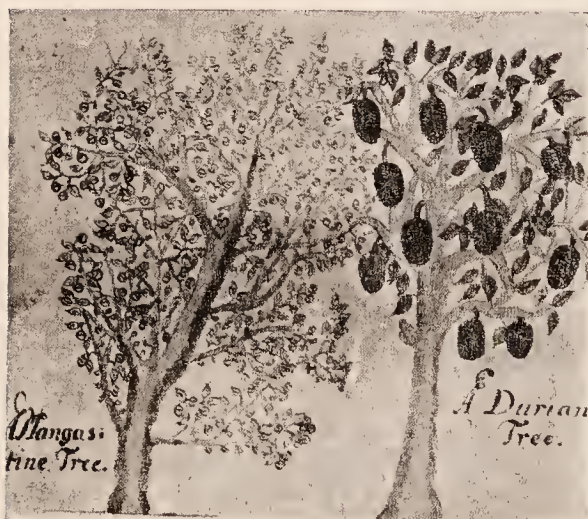 A Mangas:
tine Tree.
A Durian
Tree.